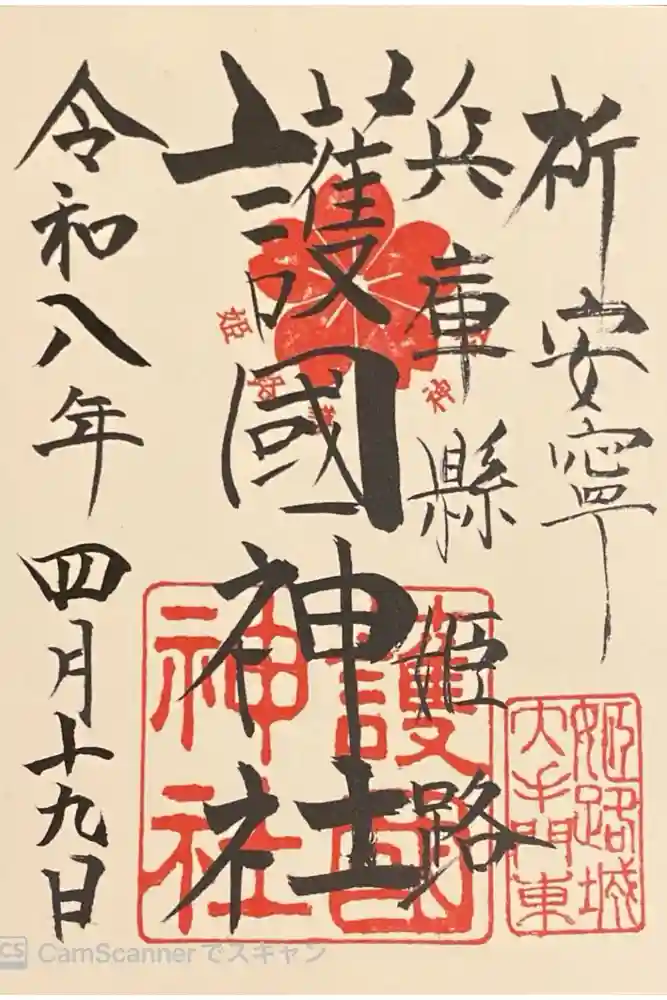 祈安寧
兵庫縣姫路
護國神社
令和八年四月十九日
姫路城
大手門東
護國
神社
姫
神
CS CamScannerでスキャン